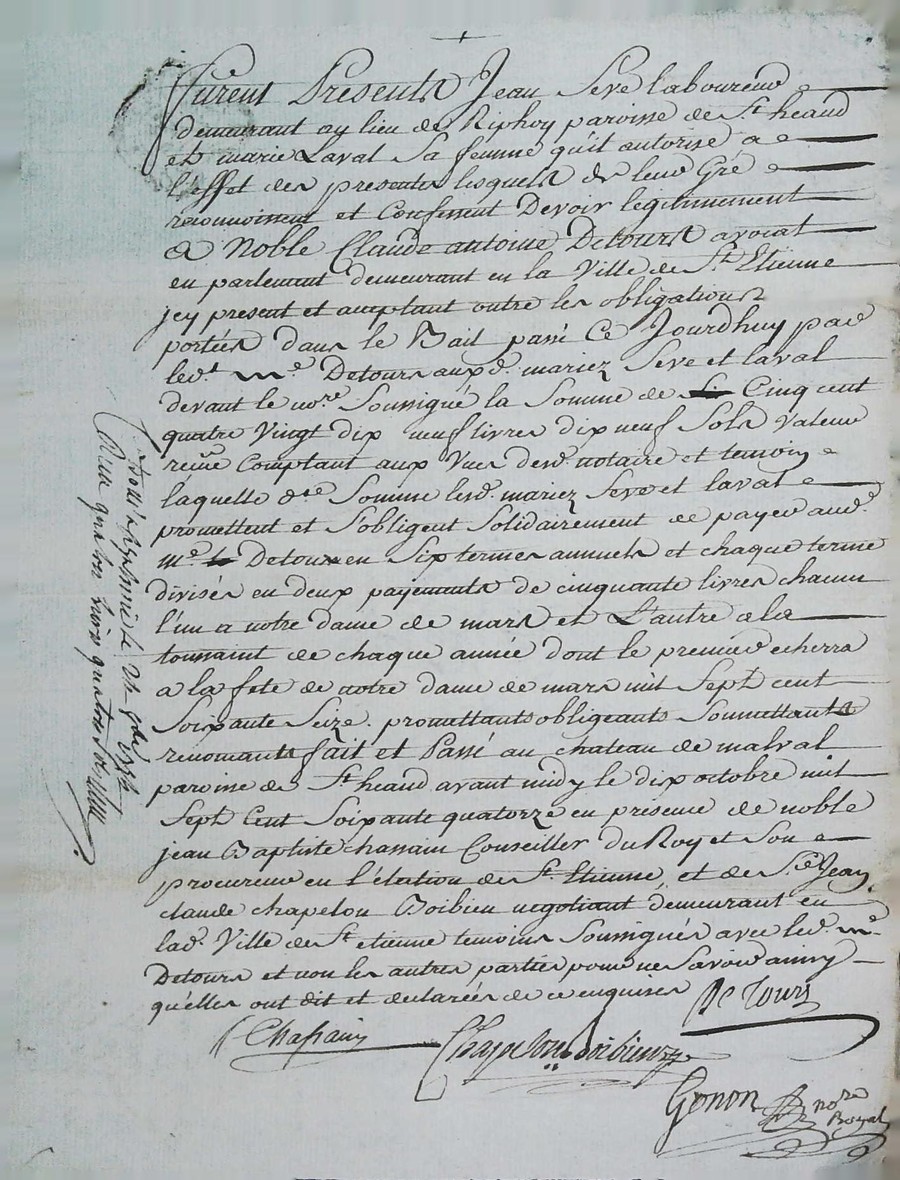 +
furent Presents Jean Seve laboureur
demeurant au lieu de Riphoy paroisse de St heand
et marie Laval Sa femme qu'il autorise a
l'effet des presentes lesquels de leur Gré
reconnoissent et Confessent Devoir legitimement
a Noble Claude antoine Detours avocat
en parlement demeurant en la Ville de St Etienne
jcy present et acceptant outre les obligations
portées dans le Bail passé Ce Jourdhuy par
led.t m.e Detours auxd. mariez Seve et laval
devant le no.re Soussigné la Somme de Cinq cent
quatre Vingt dix neuf livres dix neuf Sols Valeur
reçüe Comptant aux Vues desd. notaire et temoins
laquelle d.te Somme lesd. mariez Seve et laval
promettent et S'obligent Solidairement de payer aud.
m.e Detours en Six termes annuels et chaque terme
divisés en deux payements de cinquante livres chacun
l'un a notre dame de mars et L'autre a la
toussaint de chaque année dont le premier echerra
a la fete de notre dame de mars mil Sept cent
Soixante Seize. promettants obligeants Soumettants
renonçants fait et Passé au chateau de malval
paroisse de St heand avant midy le dix octobre mil
Sept Cent Soixante quatorze en présence de noble
jean Baptiste chassain Conseiller du Roy et Son
procureur en l'élection de St. Etienne, et de S.r Jean
claude chapelon Boibieu negotiant demeurant en
lad. Ville de St etienne temoins Soussignés avec led. m.e
Detours et non les autres parties pour ne Savoir ainsy
qu'elles ont dit et declarées de ce enquises
De Tours
Chassain
Chapelon Boibieux
Gonon no.re
Royal
Reçu quatorze livres quatorze